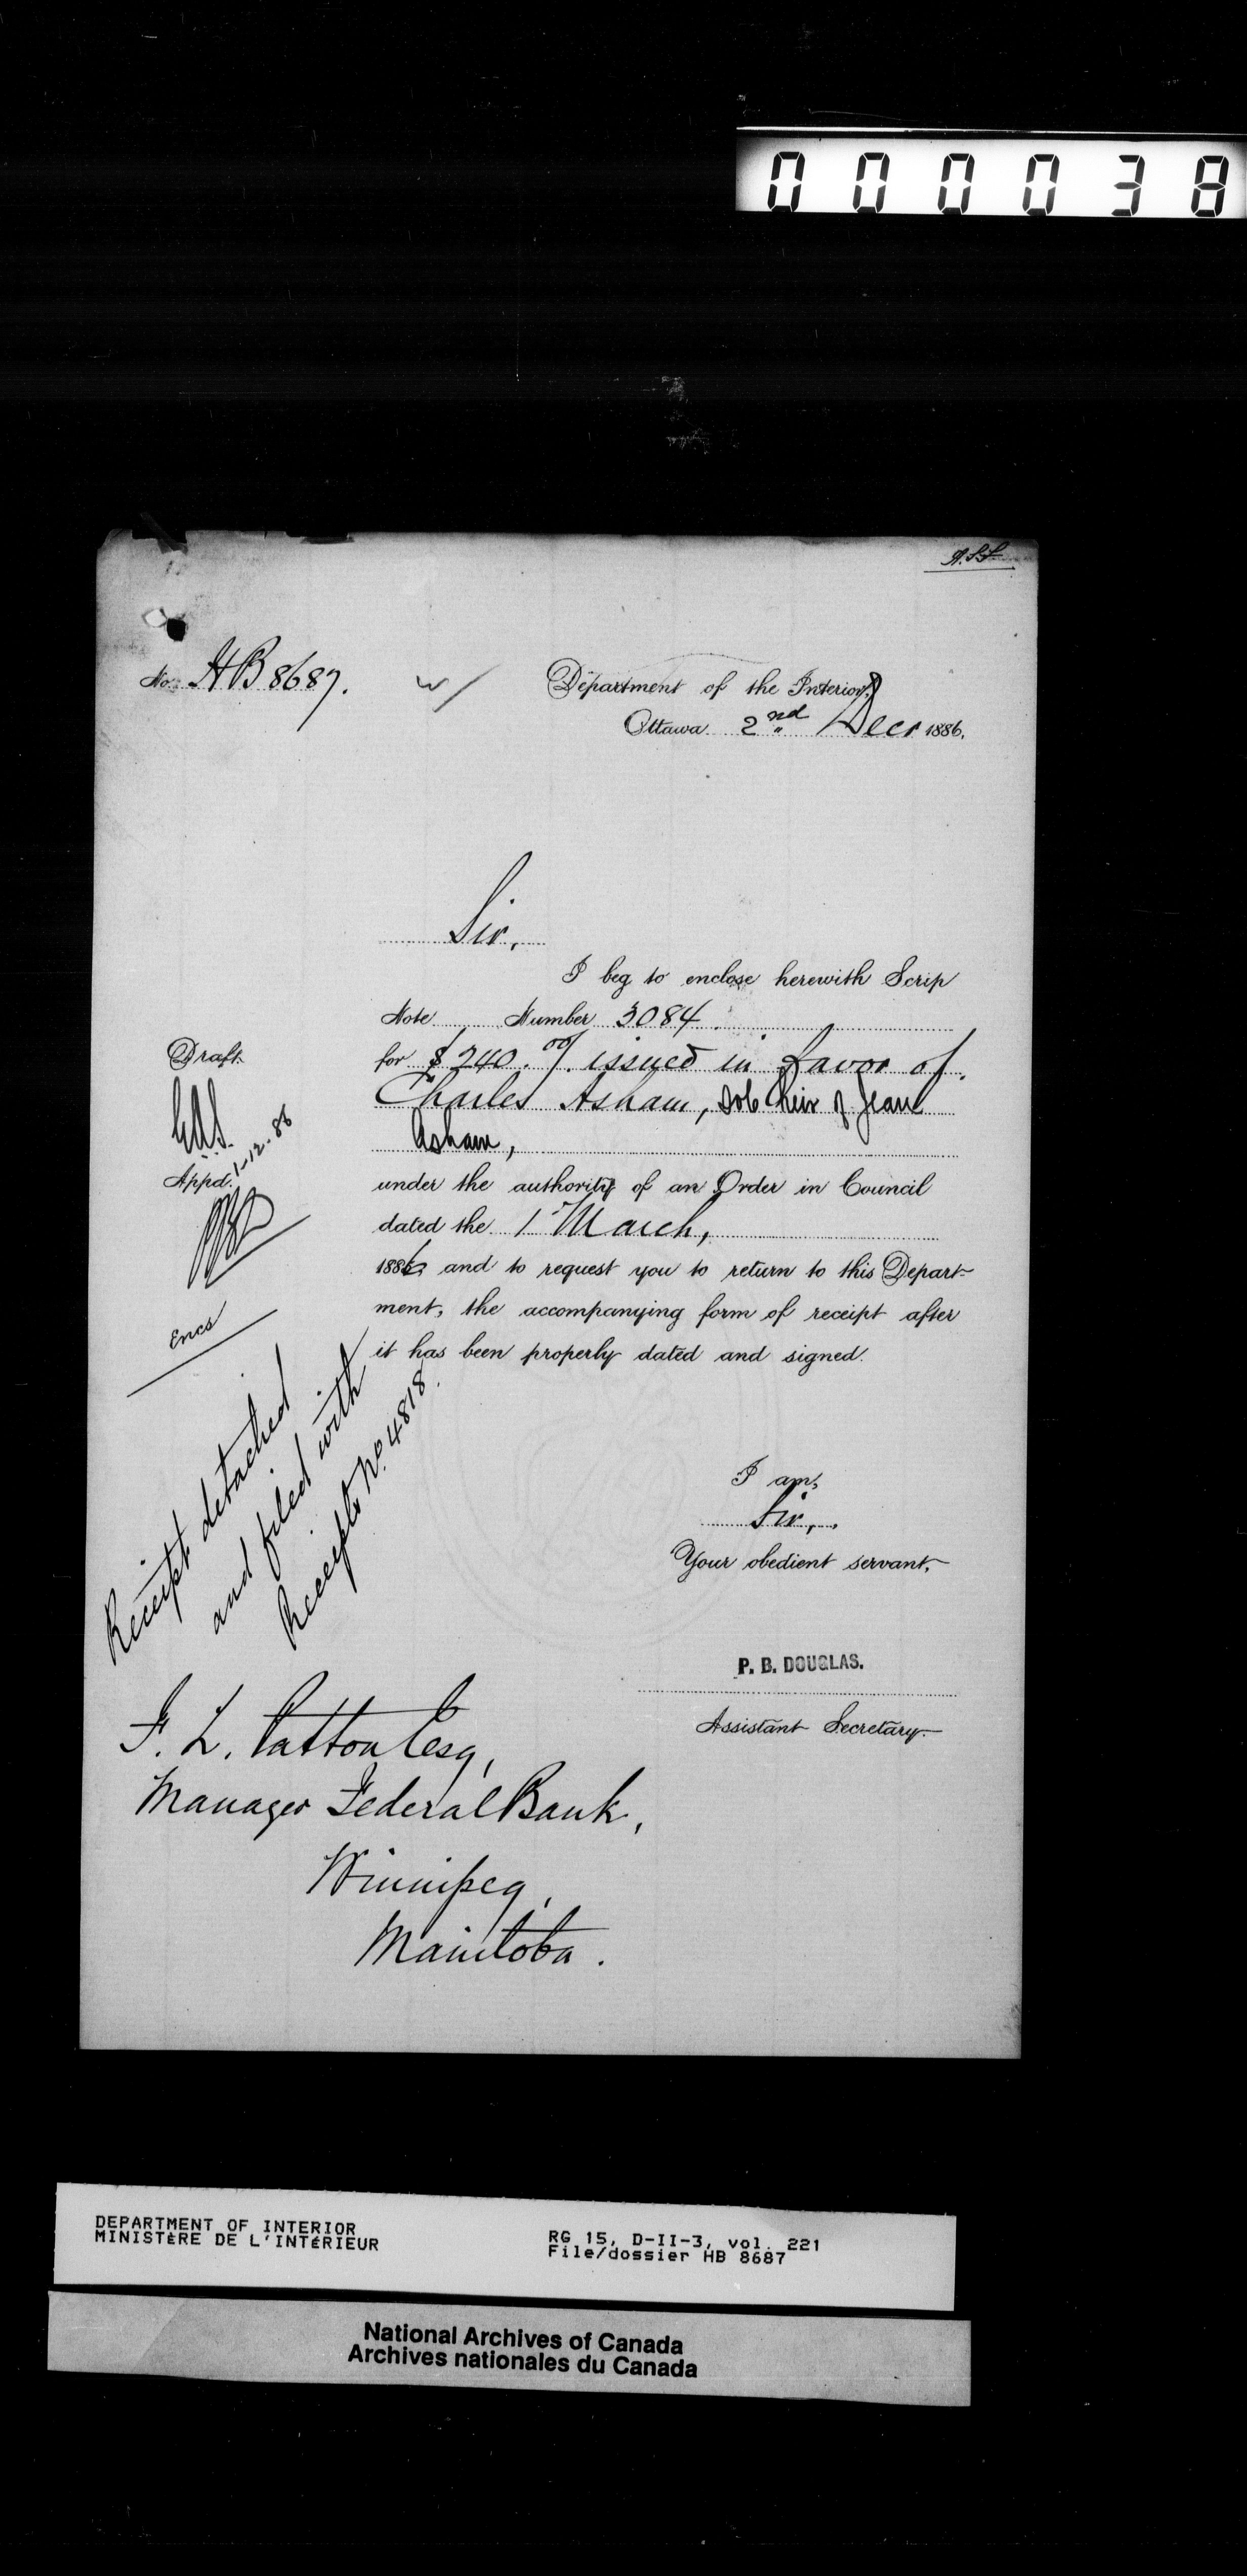 000038
A.S.S
No. HB 8687.
Department of the Interior,
Ottawa. 2nd Decr 1886.
Sir,
I beg to enclose herewith Scrip
Note Number 3084.
for $240.00/. issued in favor of
Charles Asham, sole heir of Jean
Asham,
under the authority of an Order in Council
dated the 1st March,
1886, and to request you to return to this Depart-
ment, the accompanying form of receipt after
it has been properly dated and signed.
Draft
1-12-86
Appd.
Encs
Receipt detached
and filed with
Receipts No. 4818.
I am,
Sir,
Your obedient servant,
P. B. DOUGLAS.
Assistant Secretary.
F. L. Patton Esq,
Manager Federal Bank,
Winnipeg,
Manitoba.
DEPARTMENT OF INTERIOR
MINISTÈRE DE L'INTÉRIEUR
RG 15, D-II-3, vol. 221
File/dossier HB 8687
National Archives of Canada
Archives nationales du Canada